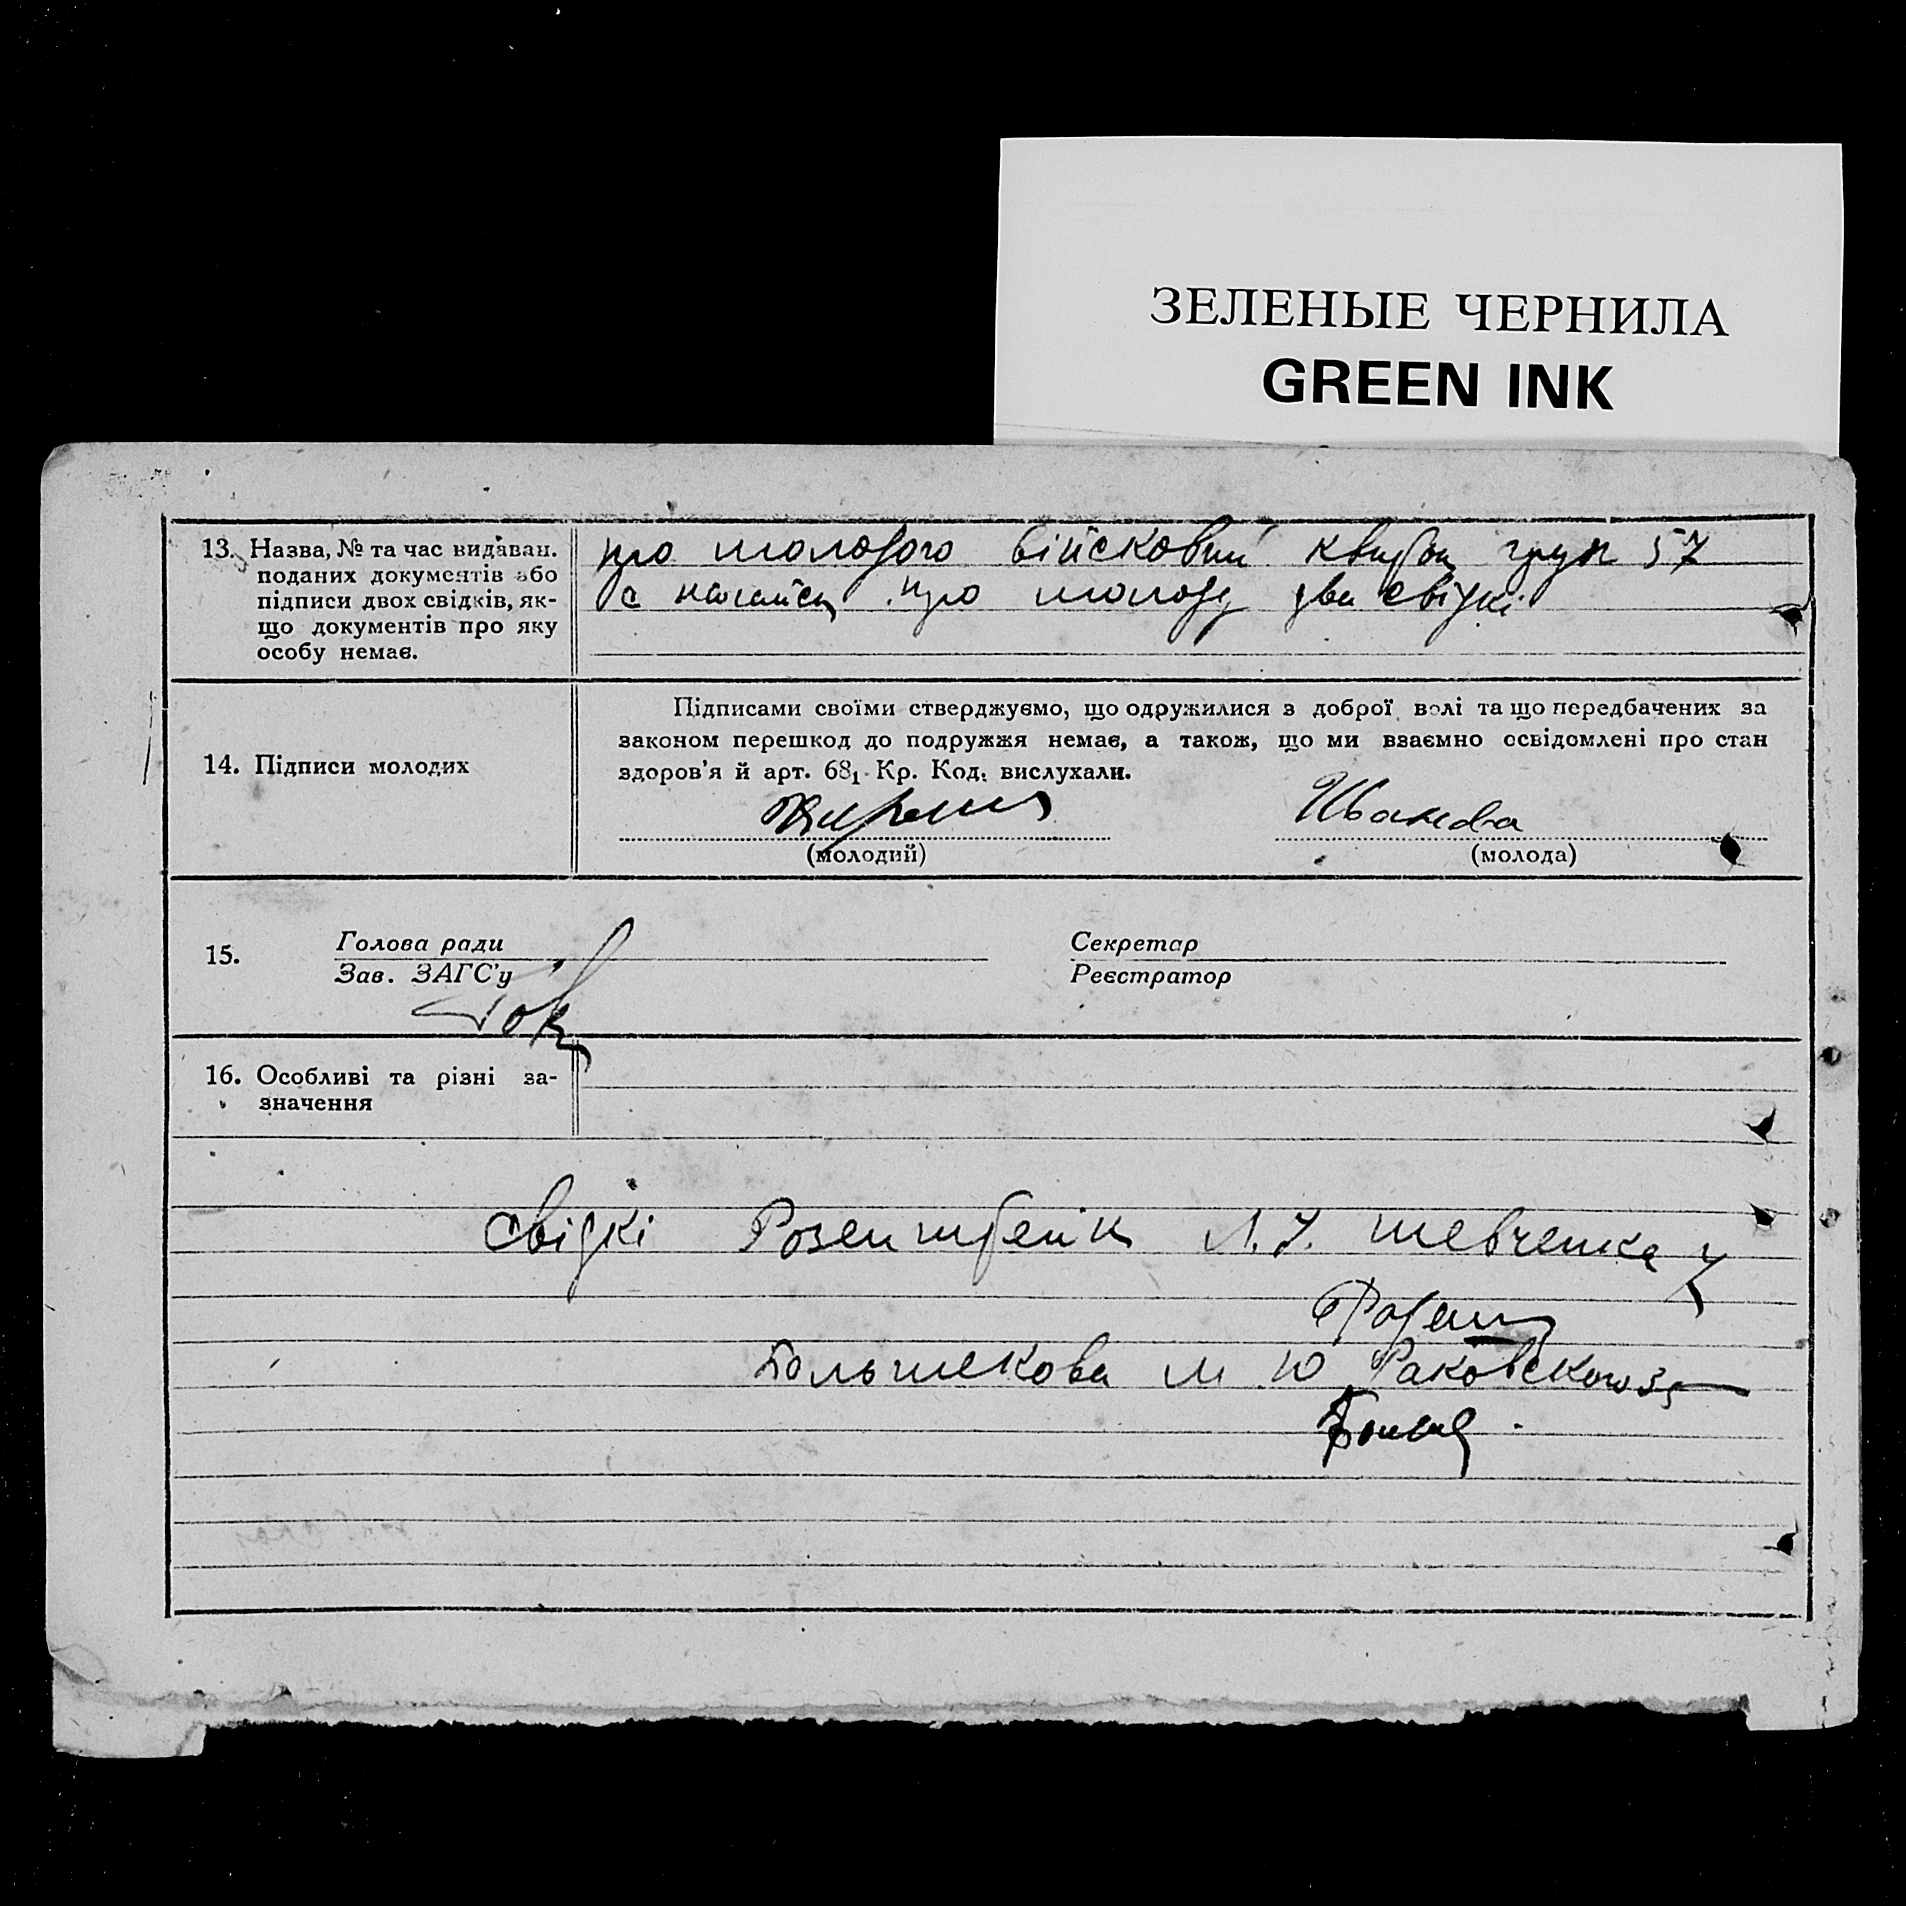 ЗЕЛЕНЫЕ ЧЕРНИЛА
GREEN INK
13. Назва, № та час видаван. поданих документів або підписи двох свідків, як-
що документів про яку особу немає.
про молодого військовий квиток груп 57
про молоду два свідкі
14. Підписи молодих
Підписами своїми стверджуємо, що одружилися з доброї волі та що передбачених за
законом перешкод до подружжя немає, а також, що ми взаємно освідомлені про стан
здоров'я й арт. 68₁ Кр. Код. вислухали.
Иванова
(молодий) (молода)
15. Голова ради
Зав. ЗАГС'у
Секретар
Реєстратор
16. Особливі та різні за-
значення
свідкі Розенштейн Л. Шевченка
Большекова М Ю Раковского